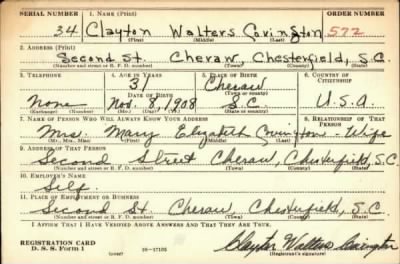 SERIAL NUMBER 1. Name (Print) ORDER NUMBER
34 Clayton Walters Covington 572
(First) (Middle) (Last)
2. Address (Print)
Second St. Cheraw, Chesterfield, S.C.
(Number and street or R. F. D. number) (Town) (County) (State)
3. Telephone 4. Age in Years 5. Place of Birth 6. Country of Citizenship
31 Cheraw
Date of Birth (Town or county)
None Nov. 8, 1908 S.C. U.S.A.
(Exchange) (Number) (Mo.) (Day) (Yr.) (State or country)
7. Name of Person Who Will Always Know Your Address 8. Relationship of That Person
Mrs. Mary Elizabeth Covington - Wife
(Mr., Mrs., Miss) (First) (Middle) (Last)
9. Address of That Person
Second Street Cheraw, Chesterfield, S.C.
(Number and street or R. F. D. number) (Town) (County) (State)
10. Employer's Name
Self.
11. Place of Employment or Business
Second St Cheraw, Chesterfield, S.C.
(Number and street or R. F. D. number) (Town) (County) (State)
I Affirm That I Have Verified Above Answers and That They Are True.
REGISTRATION CARD
D. S. S. Form 1 16-17105 Clayton Walters Covington
(over) (Registrant's signature)